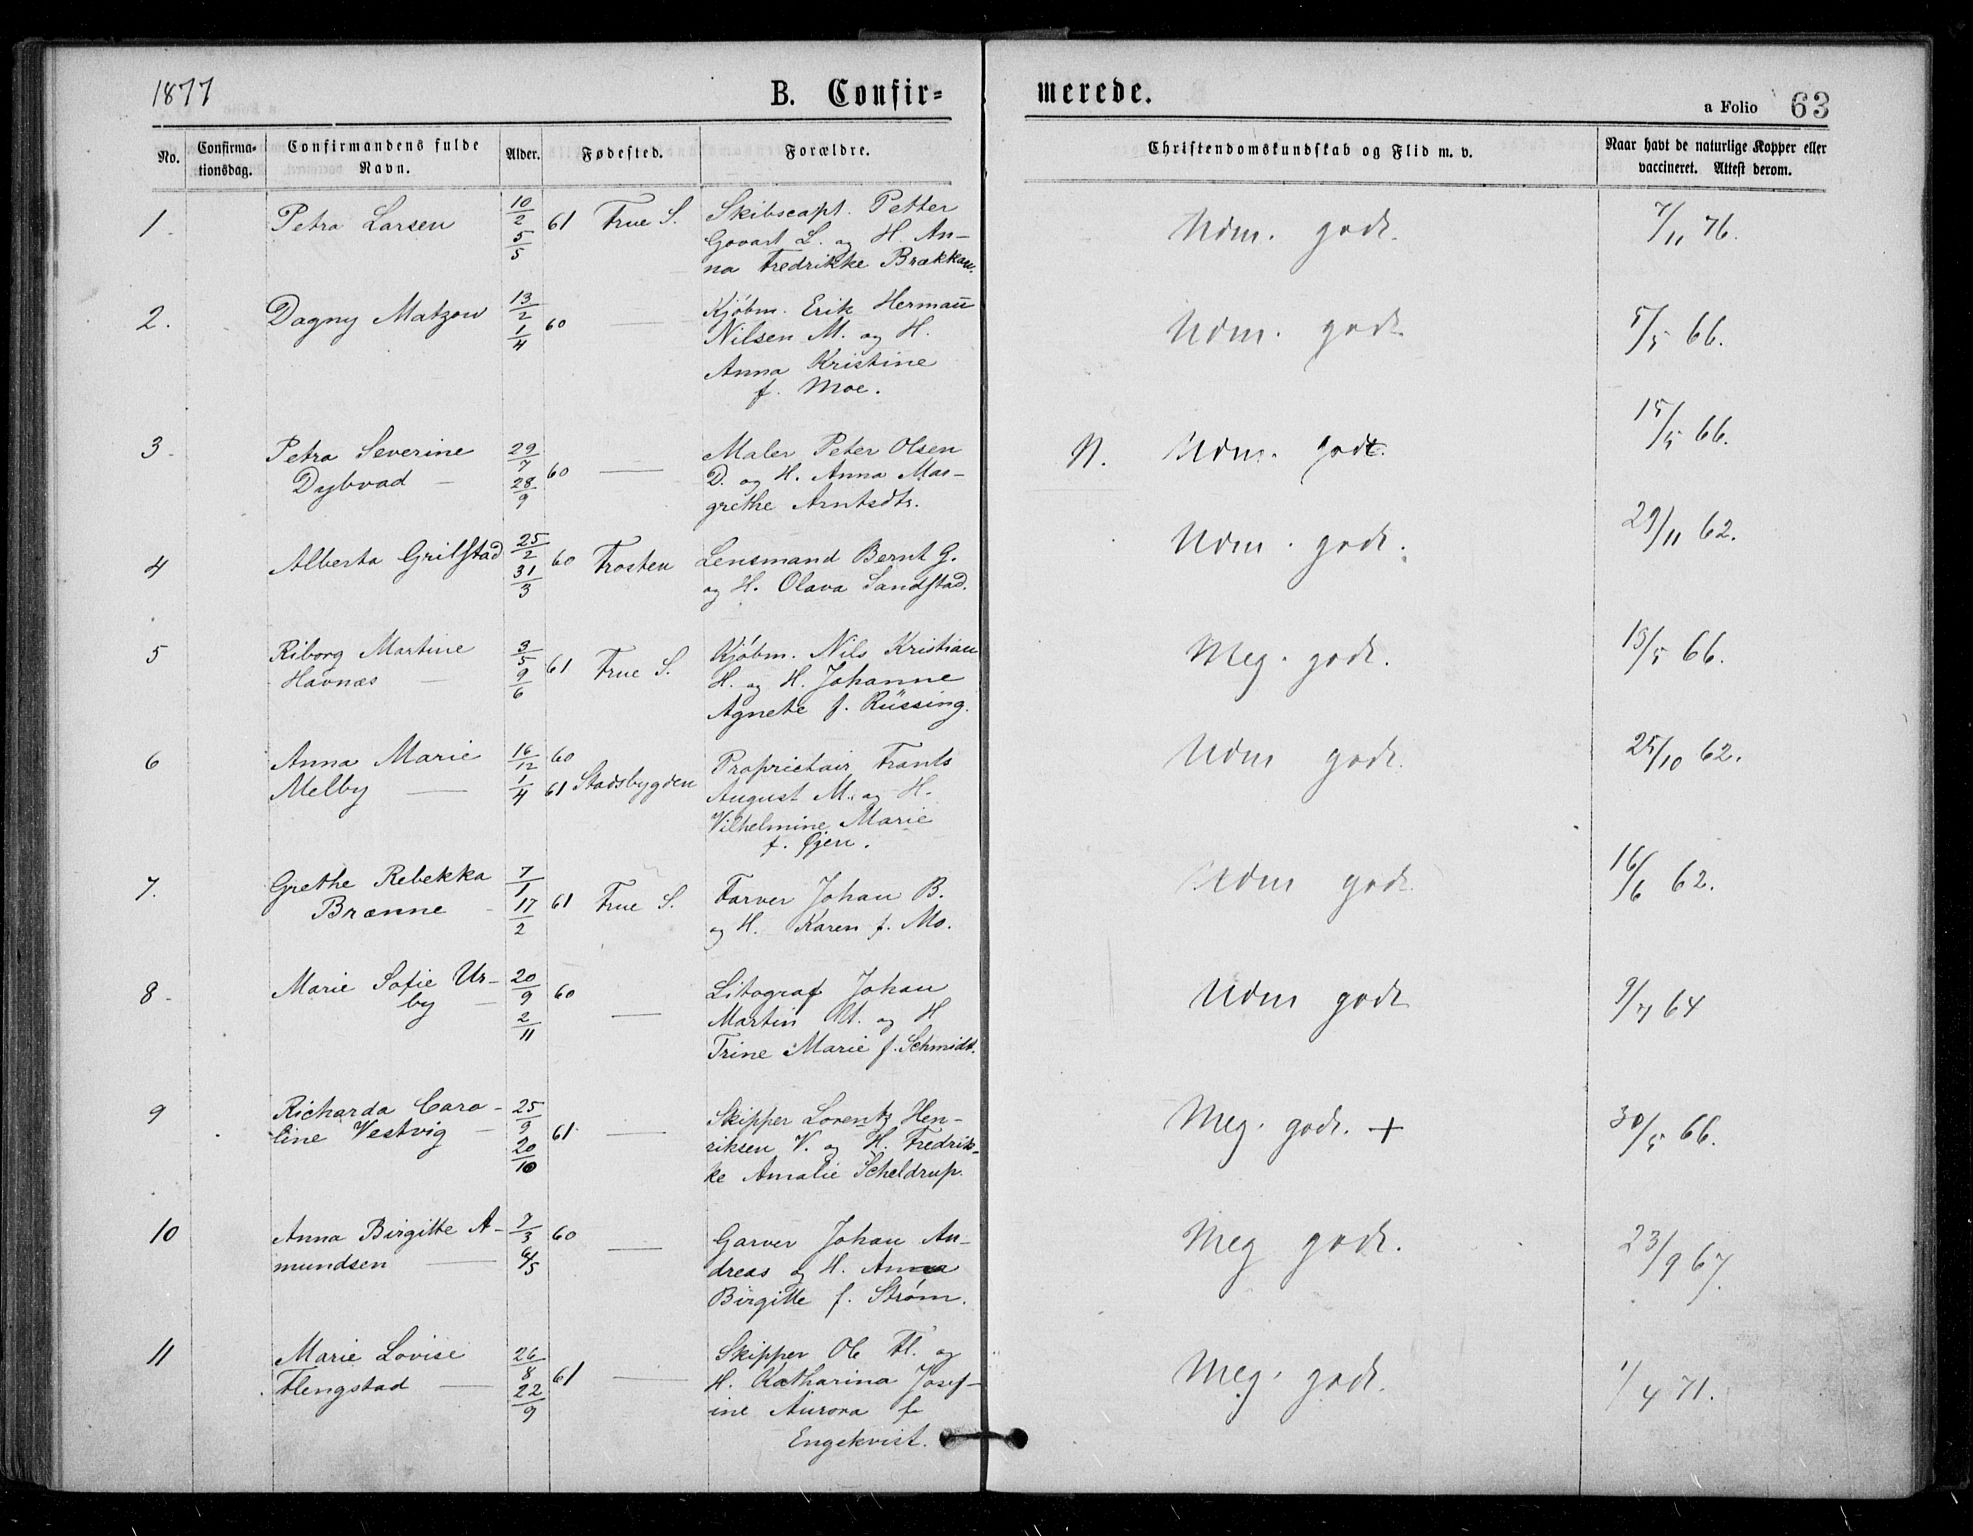 1877 B. Confir= merede. a Folio 63
No. Confirma-tionsdag. Confirmandens fulde Navn. Alder. Fødested. Forældre. Christendomskundskab og Flid m. v. Naar havt de naturlige Kopper eller vaccineret. Attest derom.
1. Petra Larsen 10/2 5/5 61 Frue S. Skibscapt. Petter Udm. godt. 7/11 76.
Govart L. og H. An-
na Fredrikke Brækkan.
2. Dagny Matzow 13/2 1/4 60 — Kjöbm. Erik Herman̄ Udm. godt. 5/5 66.
Nilsen M. og H.
Anna Kristine
f. Moe.
3. Petra Severine 29/7 28/9 60 — Maler Peter Olsen N. Udm. godt. 15/5 66.
Dybvad — D. og H. Anna Mar-
grethe Arntsdtr.
4 Alberta Grilstad 25/2 31/3 60 Frosten Lensmand Bernt G. Udm. godt. 29/11 62.
og H. Olava Sandstad.
5 Riborg Martine 3/5 9/6 61 Frue S. Kjöbm. Nils Kristian Meg. godt. 15/5 66.
Havnæs — H. og H. Johanne
Agnete f. Rüssing.
6 Anna Marie 16/12 60 Proprietair Frants Udm godt. 25/10 62.
Melby — 1/4 61 Stadsbygden August M. og H.
Vilhelmine Marie
f. Øjen.
7. Grethe Rebekka 7/1 17/2 61 Frue S. Farver Johan B. Udm godt. 16/6 62.
Brænne - og H. Karen f. Mo.
8- Marie Sofie Ur- 20/9 2/11 60 — Litograf Johan Udm godt 9/7 64
by — Martin U. og H
Trine Marie f. Schmidt.
9 Richarda Caro- 25/9 20/10 61 — Skipper Lorentz Hen- Meg. godt. + 30/5 66.
line Vestvig — riksen V. og H. Fredrik-
ke Amalie Scheldrup.
10 Anna Birgitte A- 7/3 6/5 60 — Garver Johan An- Meg godt. 23/9 67.
mundsen — dreas og H. Anna
Birgitte f. Strøm.
11 Marie Lovise 26/8 22/9 61 — Skipper Ole Fl. og Meg. godt. 1/4 71.
Flengstad — H. Katharina Josef-
ine Aurora f.
Engekvist.